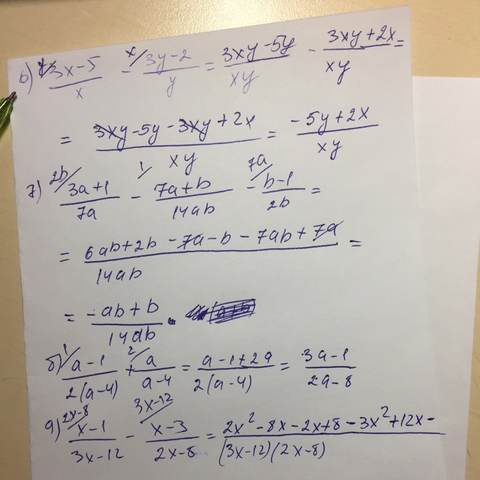 в) y/ (3x-5)/x - x/ (3y-2)/y = (3xy-5y)/xy - (3xy+2x)/xy =
= (3xy-5y-3xy+2x)/xy = (-5y+2x)/xy
г) 2b/ (3a+1)/7a - 1/ (7a+b)/14ab - 7a/ (b-1)/2b =
= (6ab+2b-7a-b-7ab+7a)/14ab =
= (-ab+b)/14ab .
б) 1/ (a-1)/2(a-4) + 2/ a/(a-4) = (a-1+2a)/2(a-4) = (3a-1)/(2a-8)
2x-8/ (x-1)/(3x-12) - 3x-12/ (x-3)/(2x-8) = (2x²-8x-2x+8-3x²+12x-)/(3x-12)(2x-8)